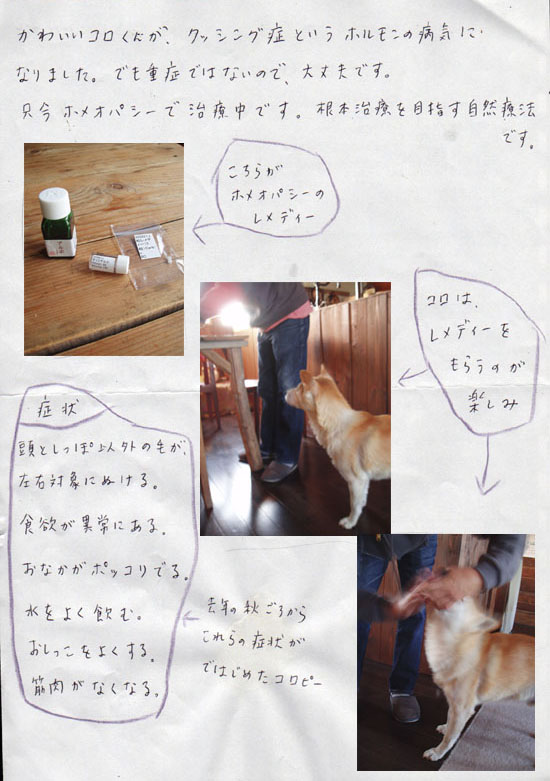 かわいいコロくんが、クッシング症というホルモンの病気に
なりました。でも重症ではないので、大丈夫です。
只今ホメオパシーで治療中です。根本治療を目指す自然療法
です。
こちらが
ホメオパシーの
レメディー
コロは、
レメディーを
もらうのが
楽しみ
症状
頭としっぽ以外の毛が、
左右対象にぬける。
食欲が異常にある。
おなかがポッコリでる。
水をよく飲む。
おしっこをよくする。
筋肉がなくなる。
去年の秋ごろから
これらの症状が
ではじめたコロピー